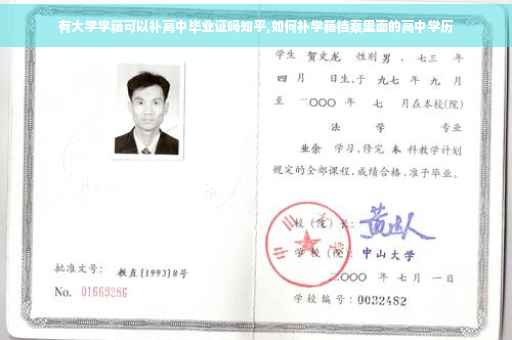 有大学学籍可以补高中毕业证吗知乎,如何补学籍档案里面的高中学历
学生 贺文龙 性别 男 、七三 年
四 月 日生,于 九七 年 九 月
至 二〇〇〇 年 七 月在本校(院)
法 学 专业
业余 学习,修完 本 科教学计划
规定的全部课程,成绩合格,准予毕业。
校(院)长:
学校(院): 中山大学
二〇〇〇 年 七 月 一 日
学校编号: 0032482
批准文号: 教直[1993]8号
No. 01663286